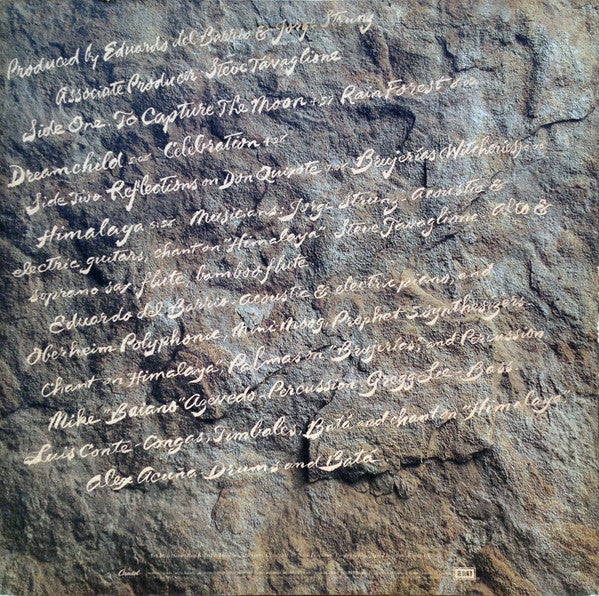 Produced by Eduardo del Barrio & Jorge Strunz
Associate Producer Steve Tavaglione
Side One. To Capture The Moon Rain Forest
Dreamchild Celebration
Side Two. Reflections on Don Quixote Brujerias (Witcheries)
Himalaya Musicians. Jorge Strunz - Acoustic &
electric guitars, chant on "Himalaya". Steve Tavaglione - Alto &
soprano sax, flute, bamboo flute
Eduardo del Barrio - Acoustic & electric piano, and
Oberheim Polyphonic, Mini Moog, Prophet 5 synthesizers
Chant on Himalaya, Palmas on "Brujerias", and Percussion
Mike "Baiano" Azevedo, Percussion Gregg Lee - Bass
Luis Conte - Congas, Timbales, Batá and chant on "Himalaya"
Alex Acuña - Drums and Batá
Capitol
EMI